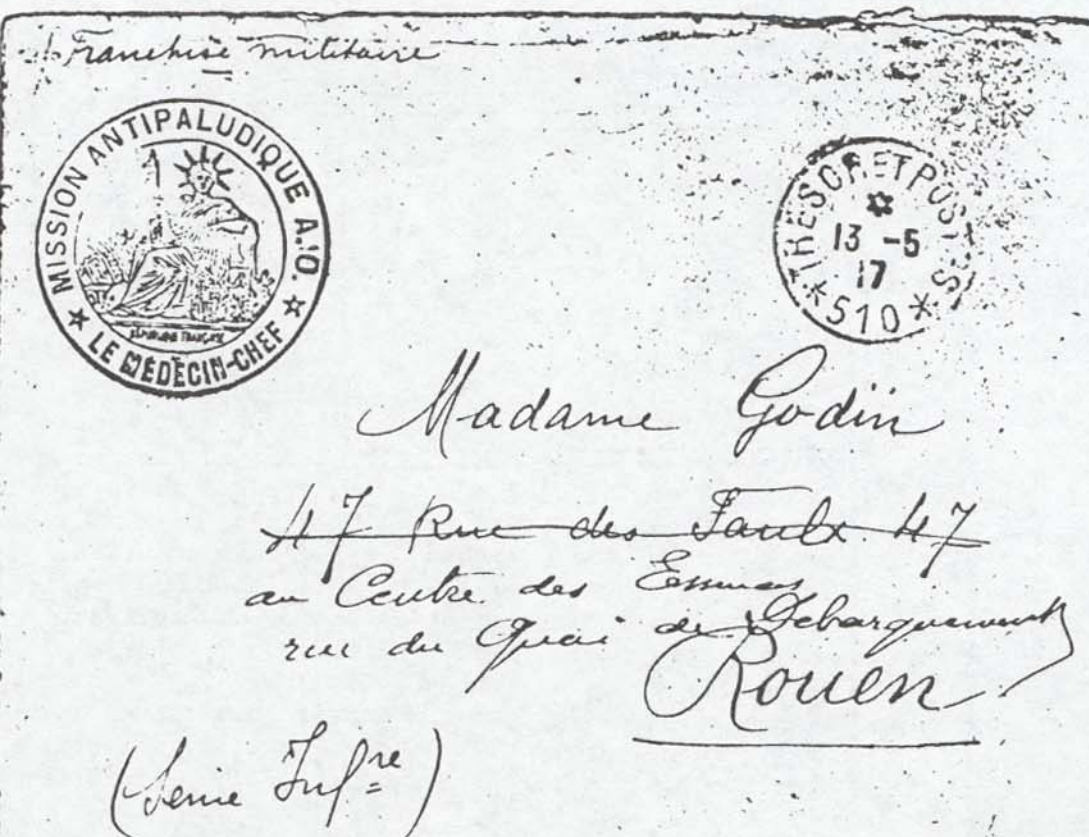 Franchise militaire
MISSION ANTIPALUDIQUE A.O.
LE MÉDECIN-CHEF
RÉPUBLIQUE FRANÇAISE
TRESOR ET POSTES
13 -5
17
510
Madame Godin
47 Rue des Faulx 47
au Centre des
rue du Quai de Debarquement
Rouen
(Seine Infre)